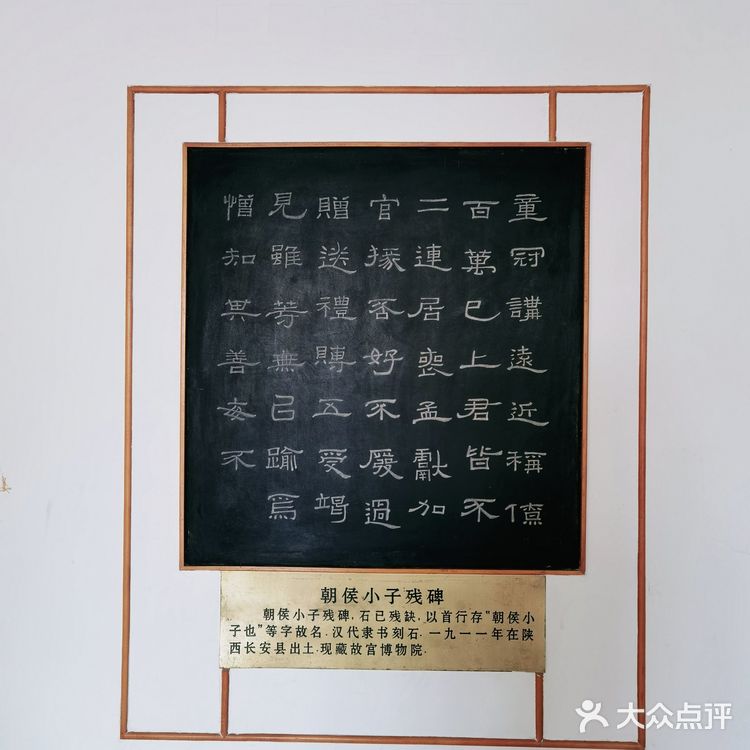 童冠講遠近稱僖
百萬已上君皆不
二連居喪孟獻加
官掾吝好不廢過
贈送禮賻五受竭
見雖無㠯踰焉
憎知其善每不
朝侯小子残碑
朝侯小子残碑，石已残缺，以首行存“朝侯小
子也”等字故名．汉代隶书刻石．一九一一年在陕
西长安县出土．现藏故宫博物院．
大众点评